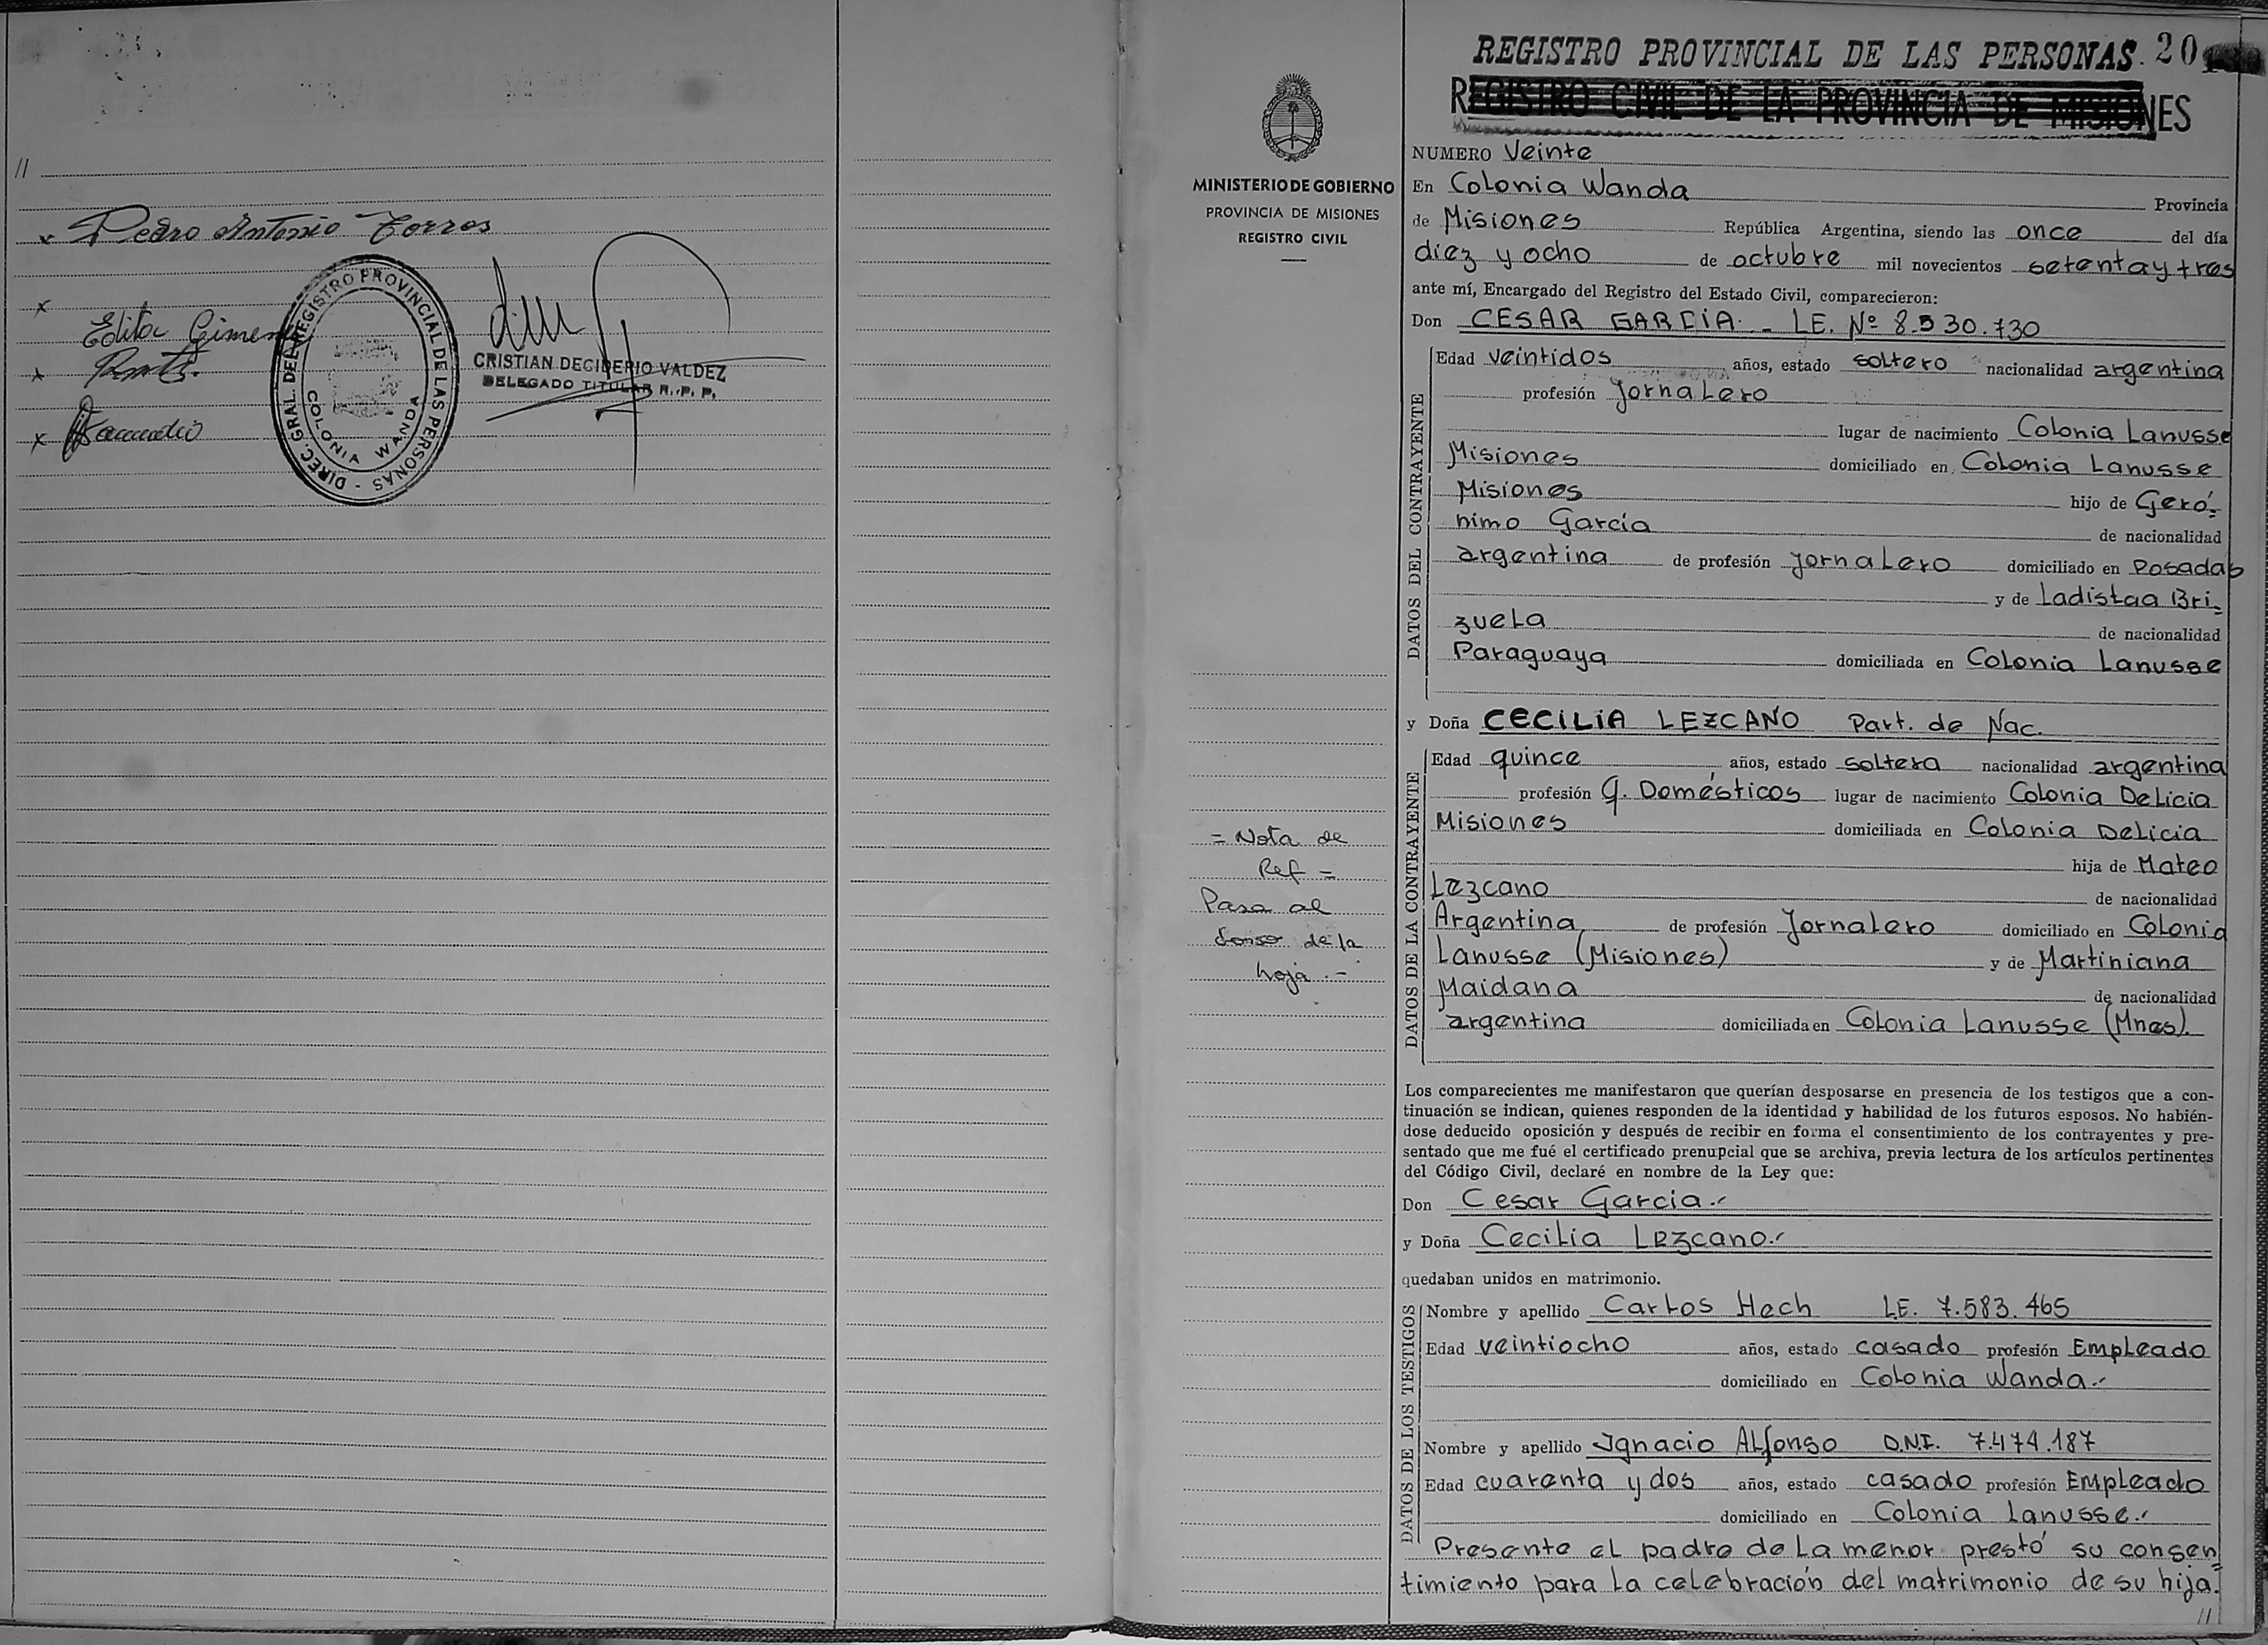 //
x Pedro Antonio Torres
x
Edita Gimen
x
x
DIREC. GRAL. DEL REGISTRO PROVINCIAL DE LAS PERSONAS -
COLONIA WANDA
CRISTIAN DECIDERIO VALDEZ
DELEGADO TITULAR R. P. P.
MINISTERIO DE GOBIERNO
PROVINCIA DE MISIONES
REGISTRO CIVIL
= Nota de
Ref =
Pasa al
dorso de la
hoja .-
REGISTRO PROVINCIAL DE LAS PERSONAS. 20
REGISTRO CIVIL DE LA PROVINCIA DE MISIONES
NUMERO Veinte
En Colonia Wanda Provincia
de Misiones República Argentina, siendo las once del día
diez y ocho de octubre mil novecientos setenta y tres
ante mí, Encargado del Registro del Estado Civil, comparecieron:
Don CESAR GARCIA - LE. Nº 8.530.730
DATOS DEL CONTRAYENTE
Edad veintidos años, estado soltero nacionalidad argentina
profesión Jornalero
lugar de nacimiento Colonia Lanusse
Misiones domiciliado en Colonia Lanusse
Misiones hijo de Geró-
nimo García de nacionalidad
argentina de profesión jornalero domiciliado en Posadas
y de Ladislaa Bri-
zuela de nacionalidad
Paraguaya domiciliada en Colonia Lanusse
y Doña CECILIA LEZCANO Part. de Nac.
DATOS DE LA CONTRAYENTE
Edad quince años, estado soltera nacionalidad argentina
profesión Q. Domésticos lugar de nacimiento Colonia Delicia
Misiones domiciliada en Colonia Delicia
hija de Mateo
Lezcano de nacionalidad
Argentina de profesión Jornalero domiciliado en Colonia
Lanusse (Misiones) y de Martiniana
Maidana de nacionalidad
argentina domiciliada en Colonia Lanusse (Mnes).
Los comparecientes me manifestaron que querían desposarse en presencia de los testigos que a con-
tinuación se indican, quienes responden de la identidad y habilidad de los futuros esposos. No habién-
dose deducido oposición y después de recibir en forma el consentimiento de los contrayentes y pre-
sentado que me fué el certificado prenupcial que se archiva, previa lectura de los artículos pertinentes
del Código Civil, declaré en nombre de la Ley que:
Don Cesar Garcia.-
y Doña Cecilia Lezcano.-
quedaban unidos en matrimonio.
DATOS DE LOS TESTIGOS
Nombre y apellido Carlos Hech LE. 7.583.465
Edad veintiocho años, estado casado profesión Empleado
domiciliado en Colonia Wanda.-
Nombre y apellido Ignacio Alfonso D.N.I. 7.474.187
Edad cuarenta y dos años, estado casado profesión Empleado
domiciliado en Colonia Lanusse.-
Presente el padre de la menor prestó su consen
timiento para la celebración del matrimonio de su hija.-
//